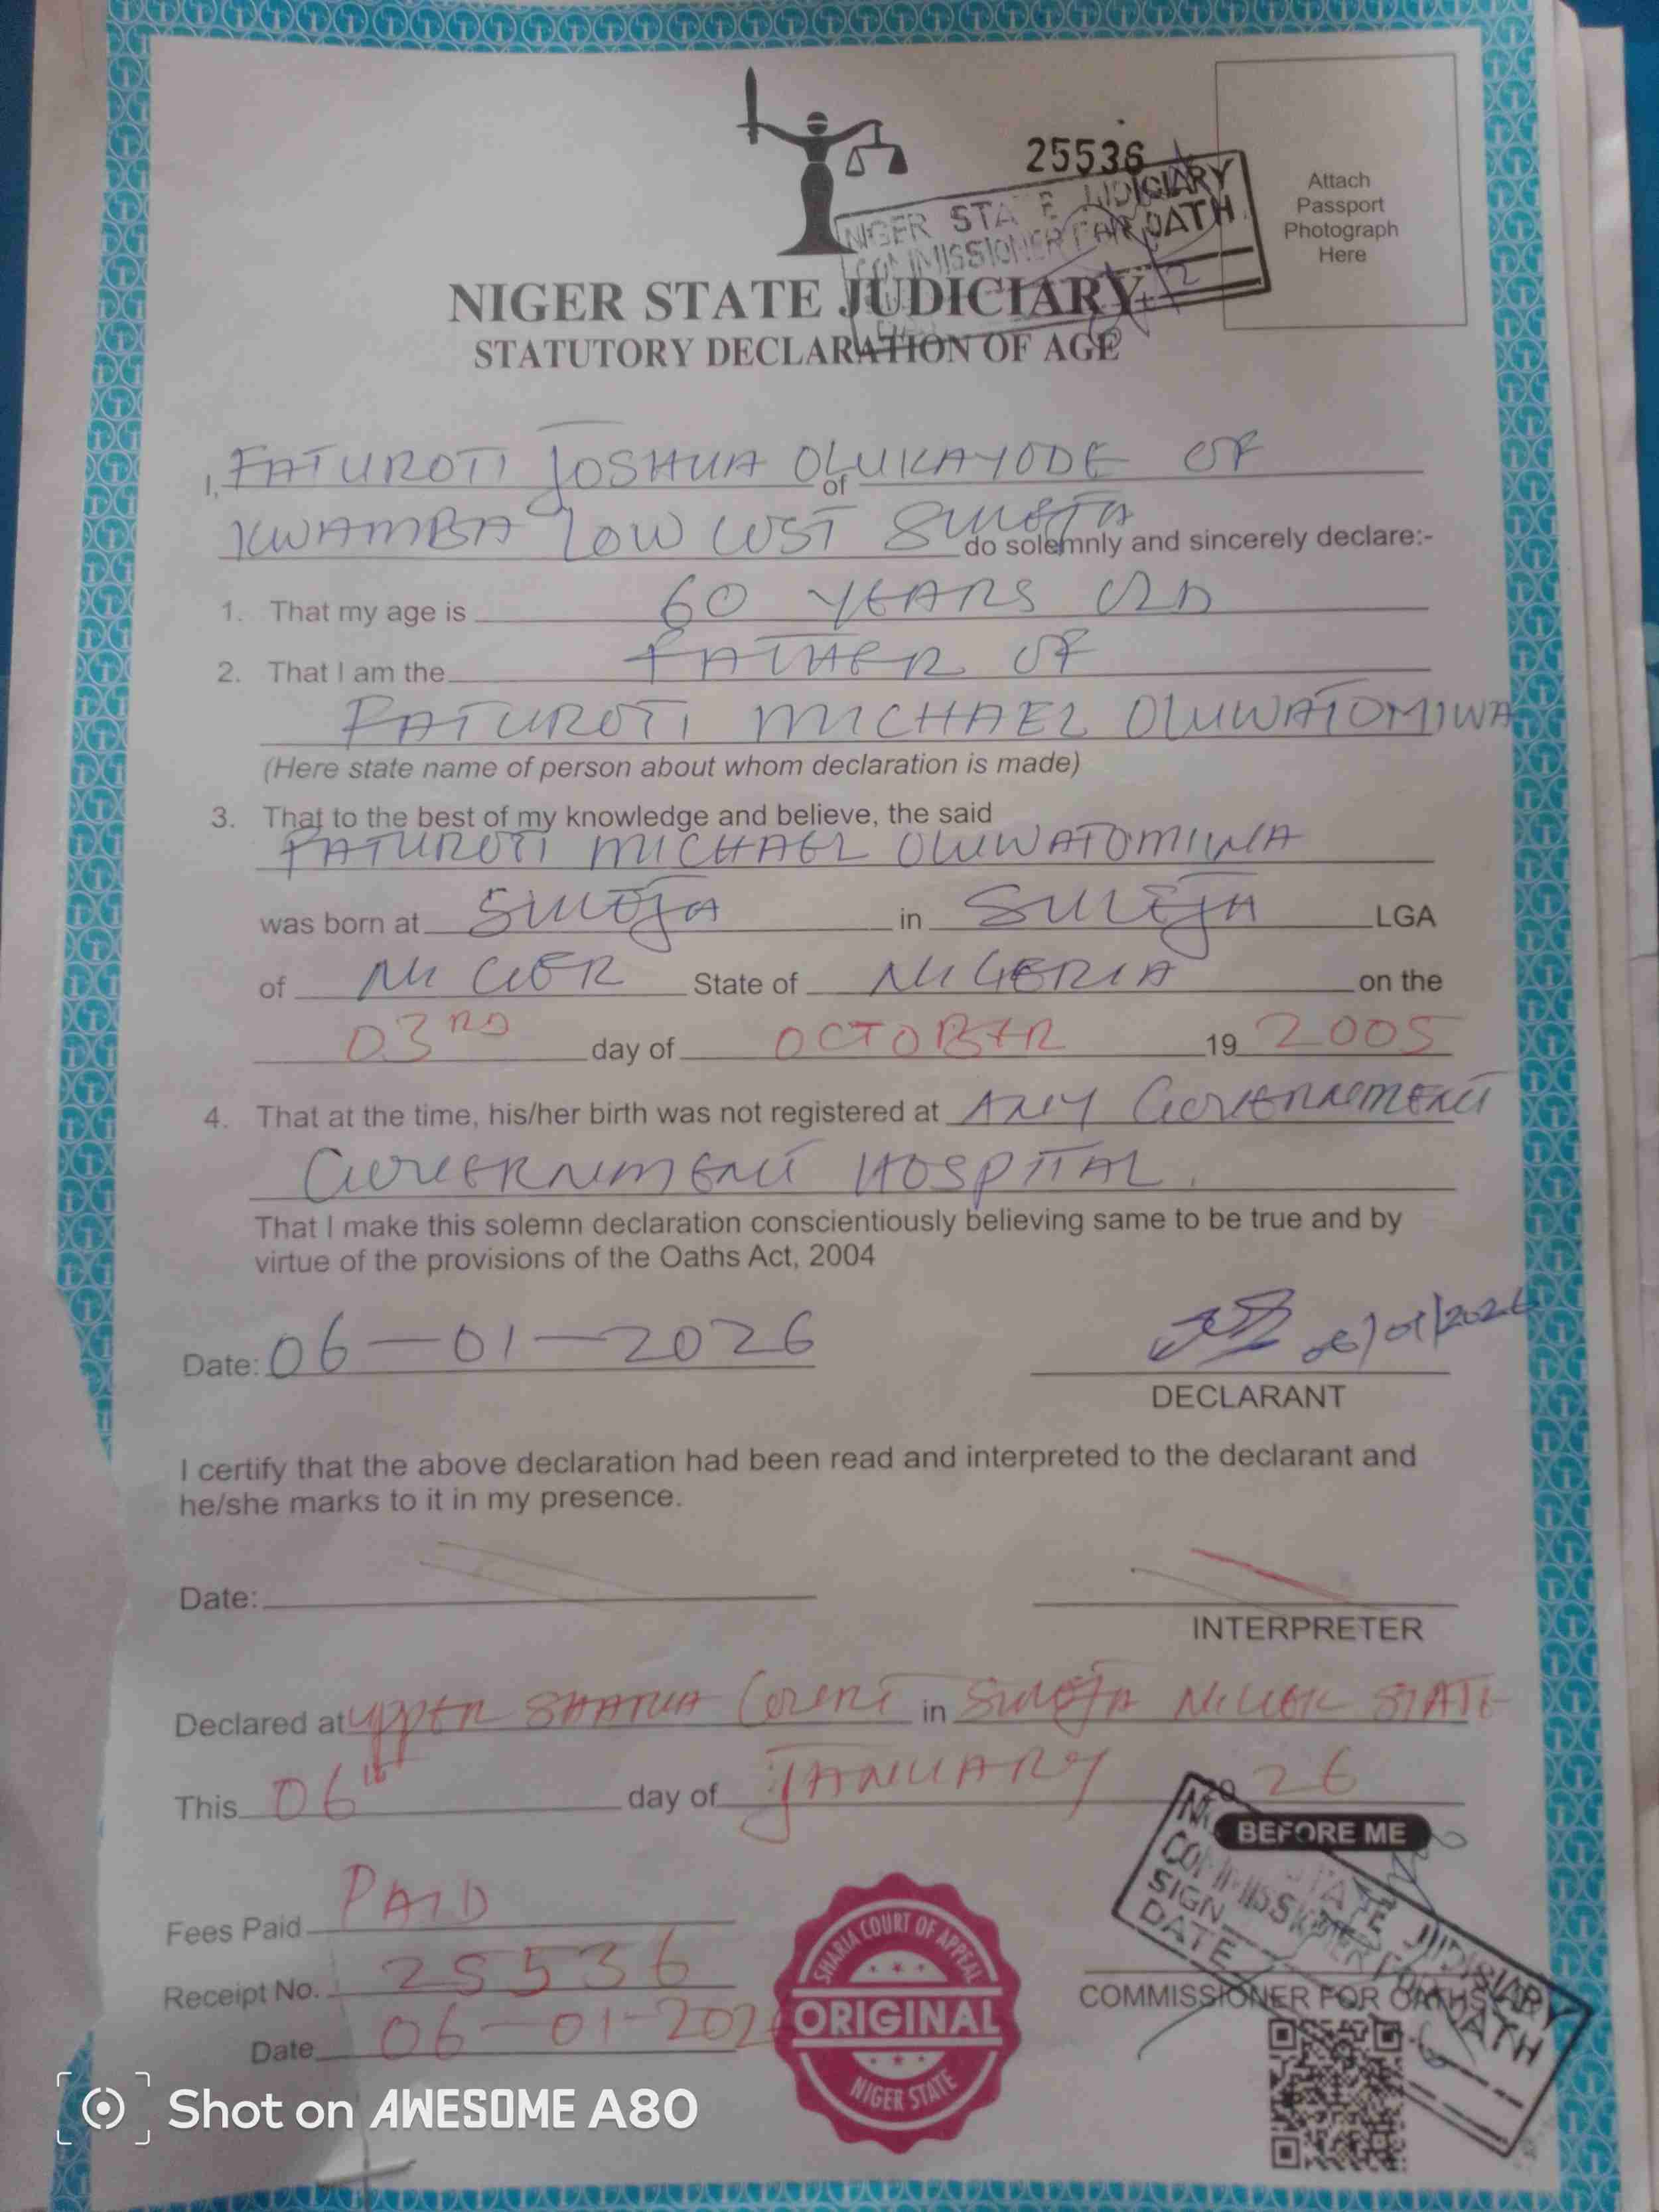 25536
NIGER STATE JUDICIARY
COMMISSIONER FOR OATH
Attach
Passport
Photograph
Here
NIGER STATE JUDICIARY
STATUTORY DECLARATION OF AGE
I, FATUROTI JOSHUA OLUKAYODE OF
of
KWAMBA LOW COST SULEJA do solemnly and sincerely declare:-
1. That my age is 60 YEARS OLD
2. That I am the FATHER OF
FATUROTI MICHAEL OLUWATOMIWA
(Here state name of person about whom declaration is made)
3. That to the best of my knowledge and believe, the said
FATUROTI MICHAEL OLUWATOMIWA
was born at SULEJA in SULEJA LGA
of NIGER State of NIGERIA on the
03RD day of OCTOBER 19 2005
4. That at the time, his/her birth was not registered at ANY GOVERNMENT
GOVERNMENT HOSPITAL.
That I make this solemn declaration conscientiously believing same to be true and by
virtue of the provisions of the Oaths Act, 2004
Date: 06-01-2026
06/01/2026
DECLARANT
I certify that the above declaration had been read and interpreted to the declarant and
he/she marks to it in my presence.
Date:
INTERPRETER
Declared at UPPER SHARIA COURT in SULEJA NIGER STATE
This 06th day of JANUARY 20 26
BEFORE ME
STATE JUDISIARY
COMMISSIONER FOR OATH
SIGN
DATE
Fees Paid PAID
Receipt No. 25536
Date 06-01-2026
SHARIA COURT OF APPEAL
ORIGINAL
NIGER STATE
COMMISSIONER FOR OATHS
Shot on AWESOME A80